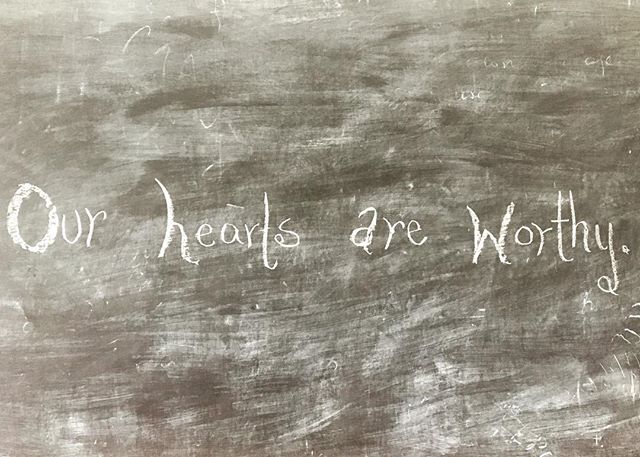 Our hearts are worthy.